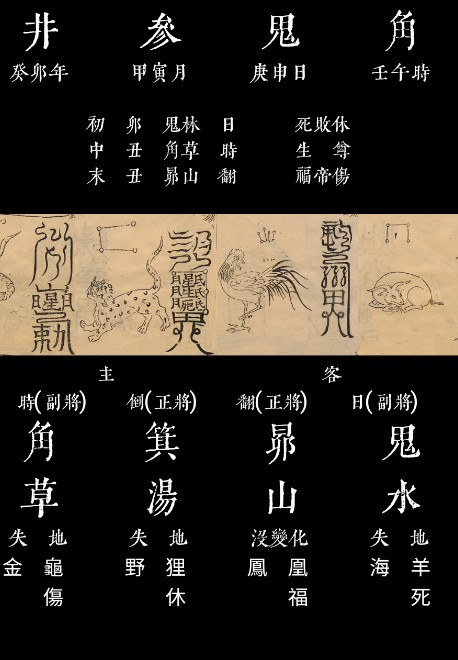 井 參 鬼 角
癸卯年 甲寅月 庚申日 壬午時
初 卯 鬼林 日 死敗休
中 丑 角草 時 生 尊
末 丑 昴山 翻 福帝傷
主 客
時(副將) 倒(正將) 翻(正將) 日(副將)
角 箕 昴 鬼
草 湯 山 水
失 地 失 地 沒變化 失 地
金 龜 野 狸 鳳 凰 海 羊
傷 休 福 死